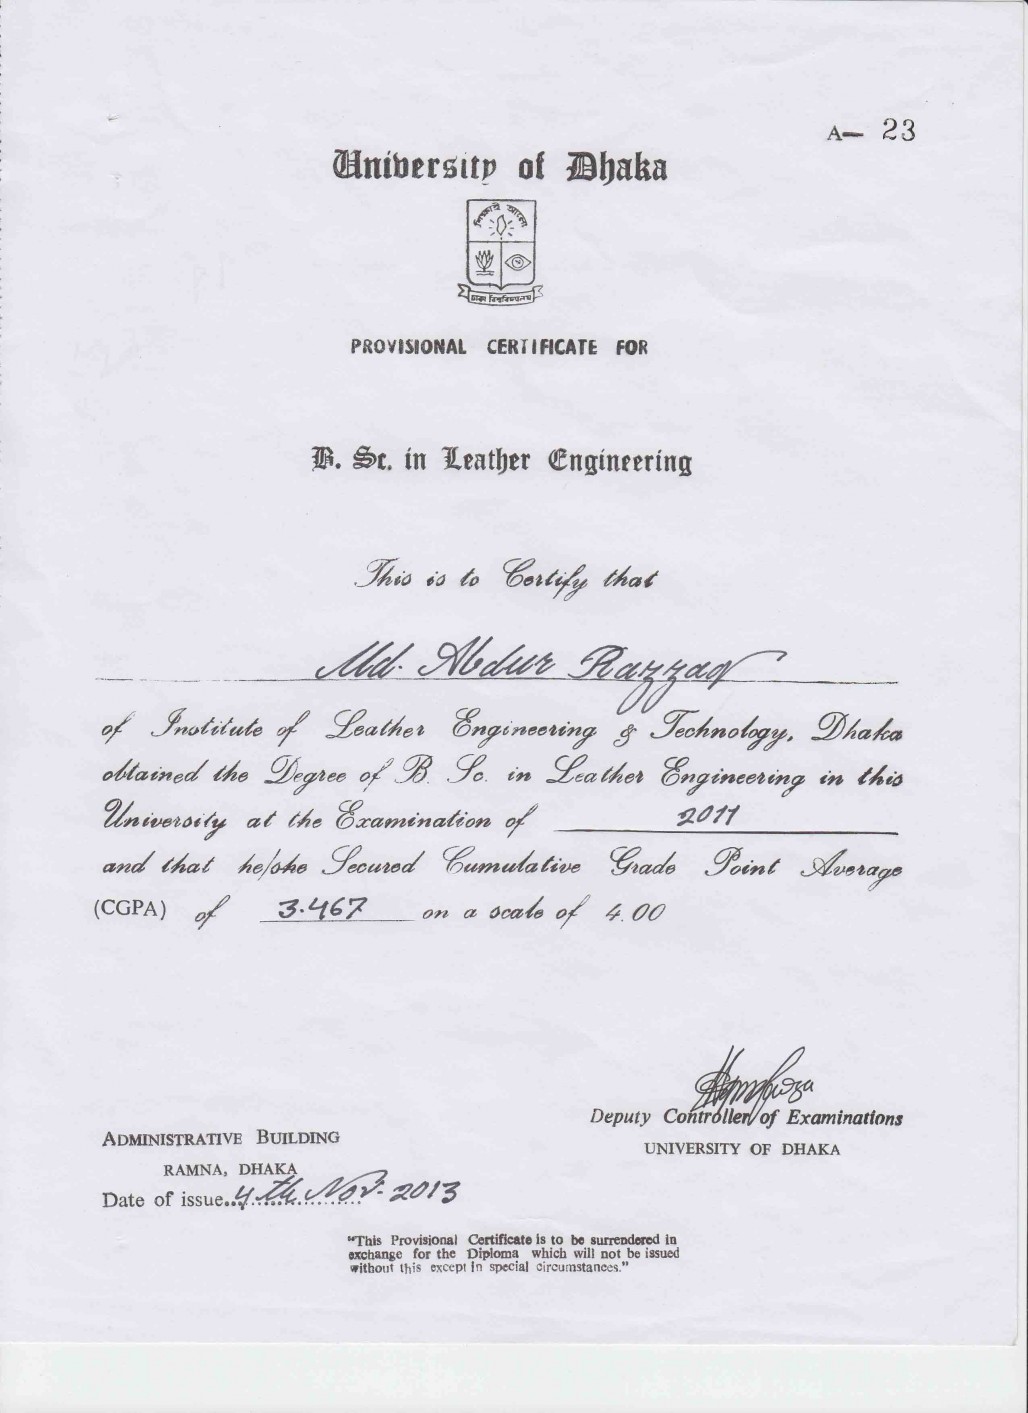 A- 23
University of Dhaka
শিক্ষাই আলো
ঢাকা বিশ্ববিদ্যালয়
PROVISIONAL CERTIFICATE FOR
B. Sc. in Leather Engineering
This is to Certify that
Md. Abdur Razzaq
of Institute of Leather Engineering & Technology, Dhaka
obtained the Degree of B. Sc. in Leather Engineering in this
University at the Examination of 2011
and that he/she Secured Cumulative Grade Point Average
(CGPA) of 3.467 on a scale of 4.00
Deputy Controller of Examinations
UNIVERSITY OF DHAKA
ADMINISTRATIVE BUILDING
RAMNA, DHAKA
Date of issue..4th Nov. 2013
"This Provisional Certificate is to be surrendered in
exchange for the Diploma which will not be issued
without this except in special circumstances."